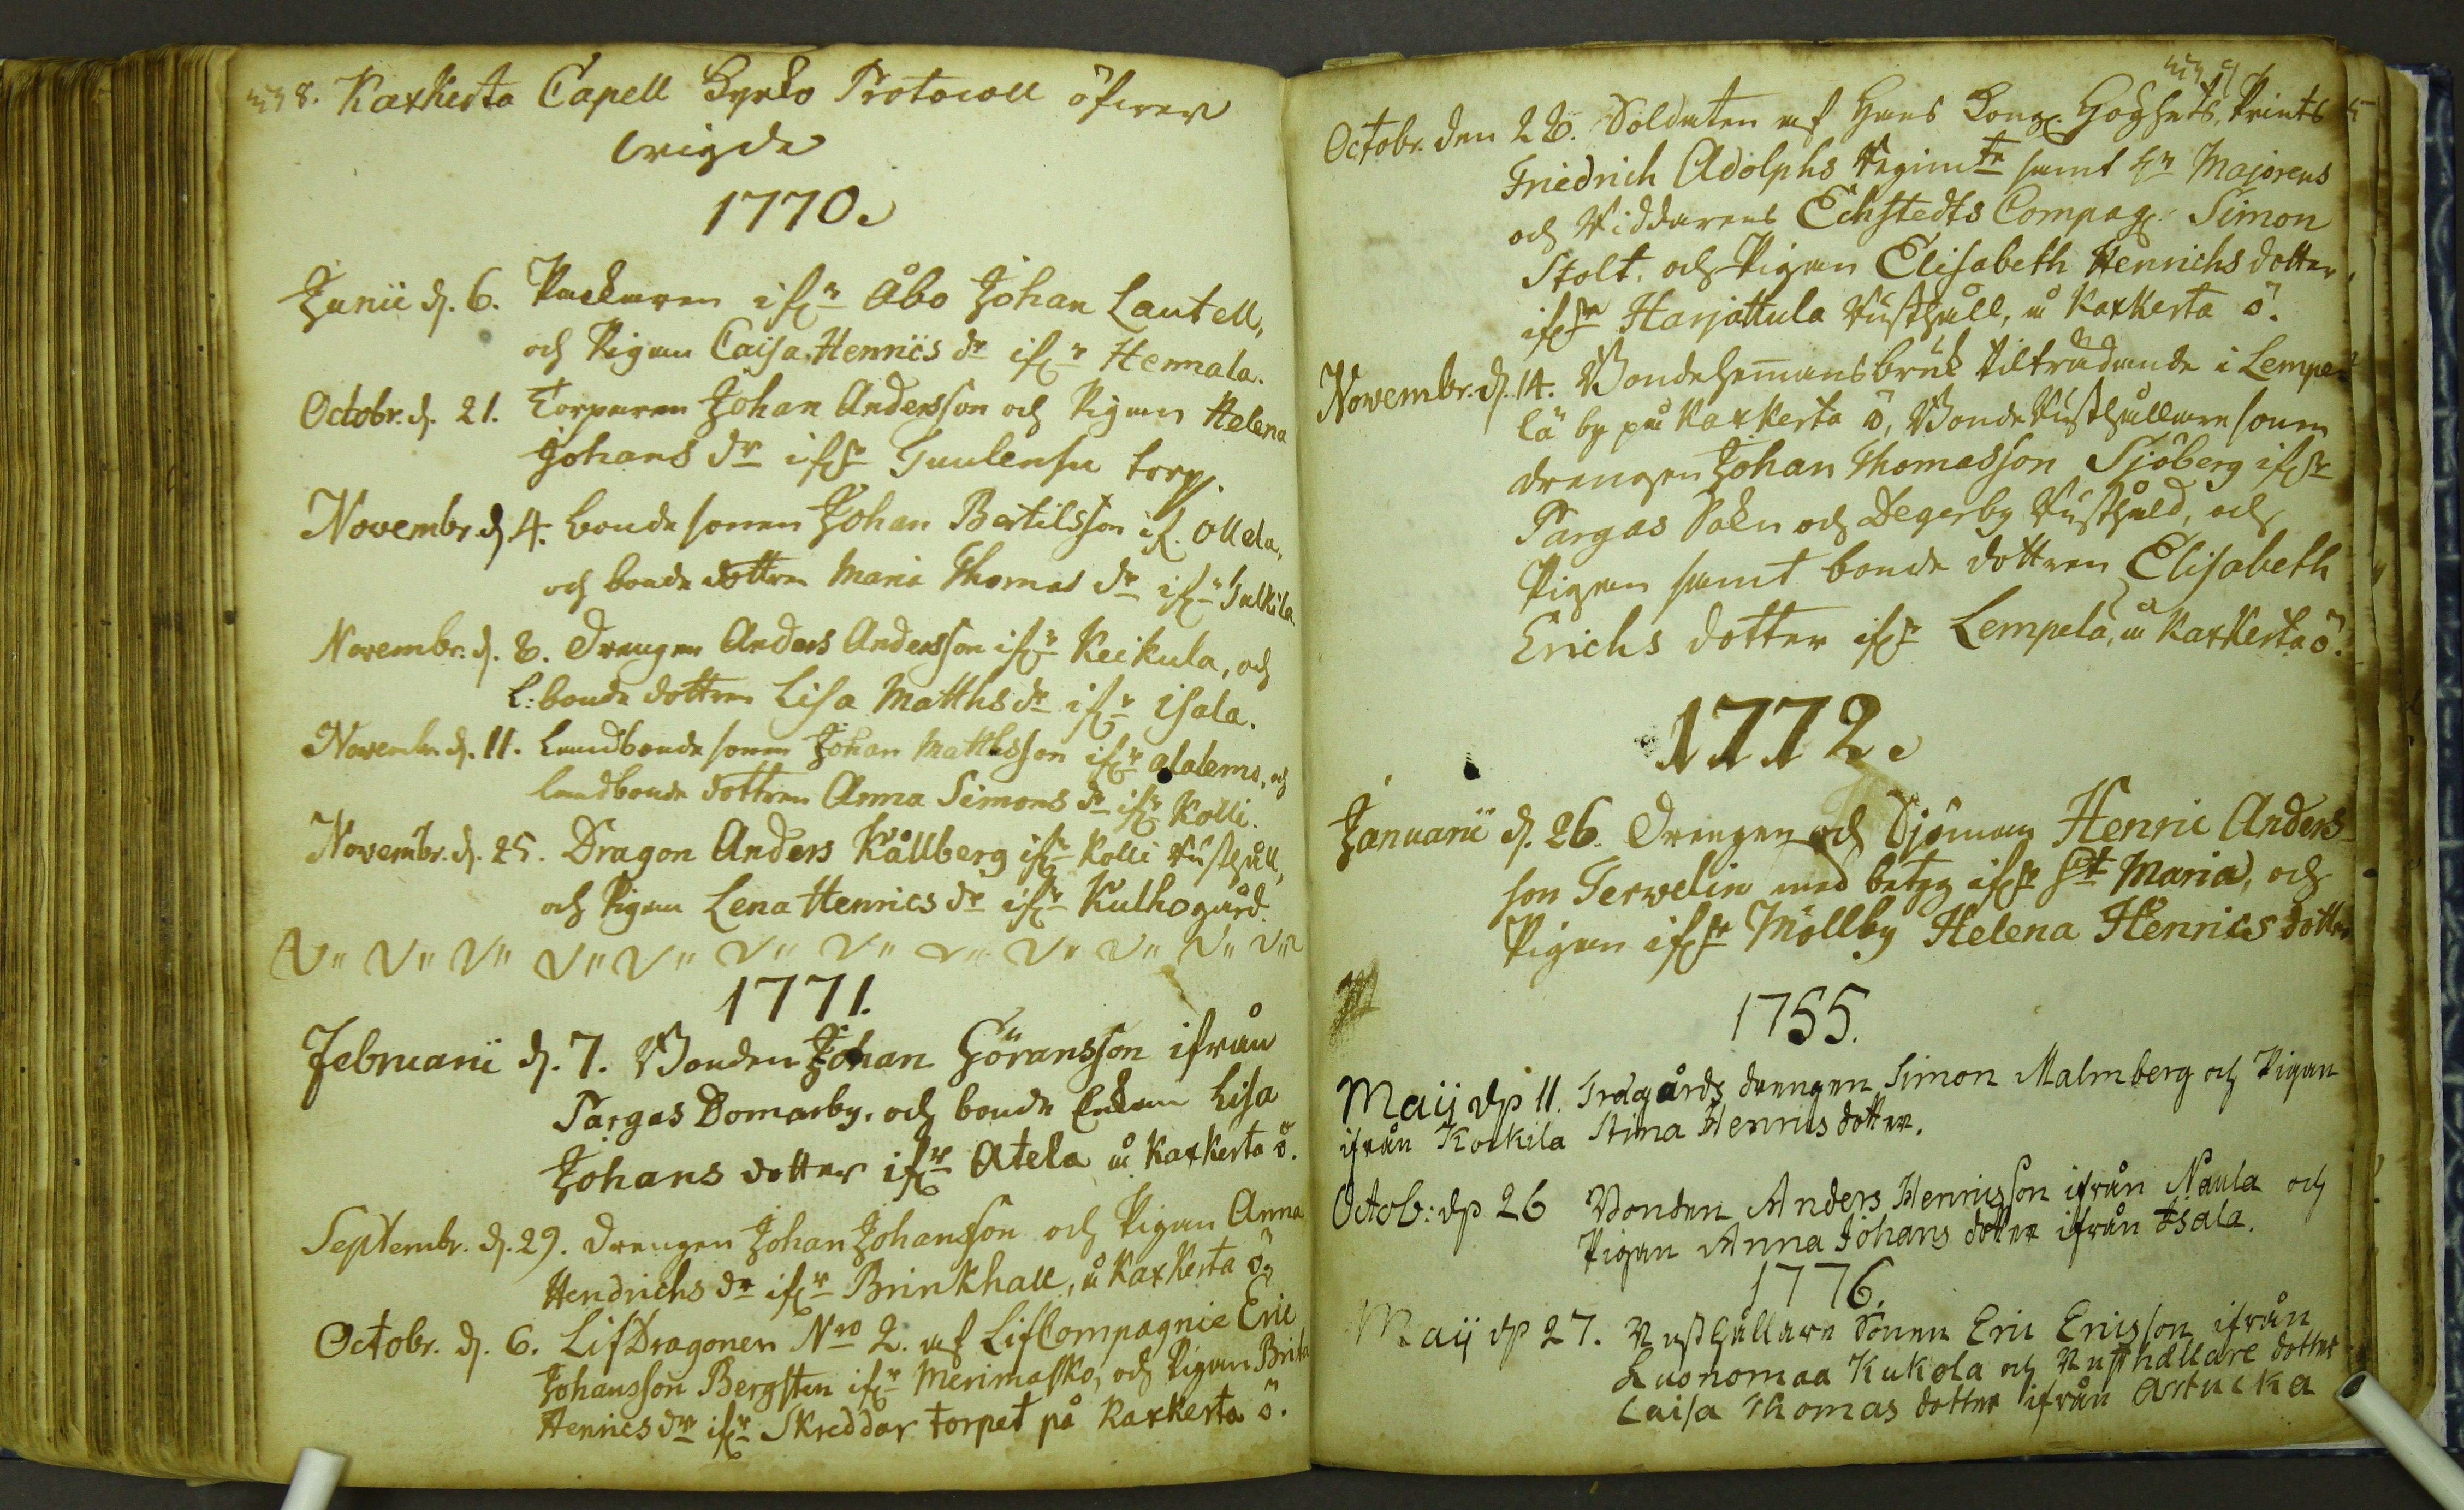 Kaxkerta Capell Kyrko Protocoll öfwer
wigde
1770.
Junii d. 6. Packaren ifr. Åbo Johan Lautell,
och Pigan Caisa Henrics dr ifr. Hennala.
Octobr. d. 21. Torparen Johan Andersson och Pigan Helena
Johans dr ifr. torp.
Novembr. d. 4. bonde sonen Johan Bertilsson if. Ollela,
och bonde dottren Maria Thomas dr ifr.
Novembr. d. 8. Drengen Anders Andersson ifr. Keikula, och
L: bonde dottren Lisa Matths dr ifr. Isala.
Novembr. d. 11. Landbonde sonen Johan Matthsson ifr. alalemo, och
landbonde dottren Anna Simons dr ifr. Kolli.
Novembr. d. 25. Dragon Anders Kållberg ifr. Kolli Rusthåll,
och Pigan Lena Henrics dr ifr. Kulhogård.
1771.
Februarii d. 7. Bonden Johan Göransson ifrån
Pargas Domarby, och bonde Enkan Lisa
Johans dotter ifr. Atela å Kaxkerta ö.
Septembr. d. 29. Drengen Johan Johansson och Pigan Anna
Hendrichs dr ifr. Brinkhall, å Kaxkerta ö.
Octobr. d. 6. LifDragonen Nro 2. af LifCompagnie Eric
Johansson Bergsten ifr. Merimasko, och Pigan Brita
Henrics dr ifr. Skreddar torpet på Kaxkerta ö.
Octobr. den 28. Soldaten af Hans Kong. Höghets, Prints
Friedrich Adolphs Regimte samt hr Majorens
och Riddarens Echstedts Compag. Simon
Stolt, och Pigan Elisabeth Henrichs dotter,
ifr. Harjattula Rusthåll, å Kaxkerta ö.
Novembr. d. 14. Bondehemansbruk tilträdande i Lempe-
lä by på Kaxkerta ö, Bonde Rusthållare sonen
drengen Johan Thomasson Sjöberg ifr.
Pargas Sokn och Degerby Rusthåld, och
Pigan samt bonde dottren Elisabeth
Erichs dotter ifr. Lempelä, å Kaxkerta ö.
1772.
Januarii d. 26. Drengen och Sjöman Henric Anders-
son Terwelin med betyg ifr. St Maria, och
Pigan ifr. Möllby Helena Henrics dotter
1755.
Maij d. 11. Trdgårds drengen Simon Malmberg och Pigan
ifrån Korkila Stina Henrics dotter.
Octob: d. 26 Bonden Anders Henricsson ifrån Naula och
Pigan Anna Johans dotter ifrån Isala.
1776.
Maij d. 27. Rusthållare Sonen Eric Ericsson ifrån
Luonomaa Kukola och Rusthållare dotter
Caisa Thomas dotter ifrån Artucka